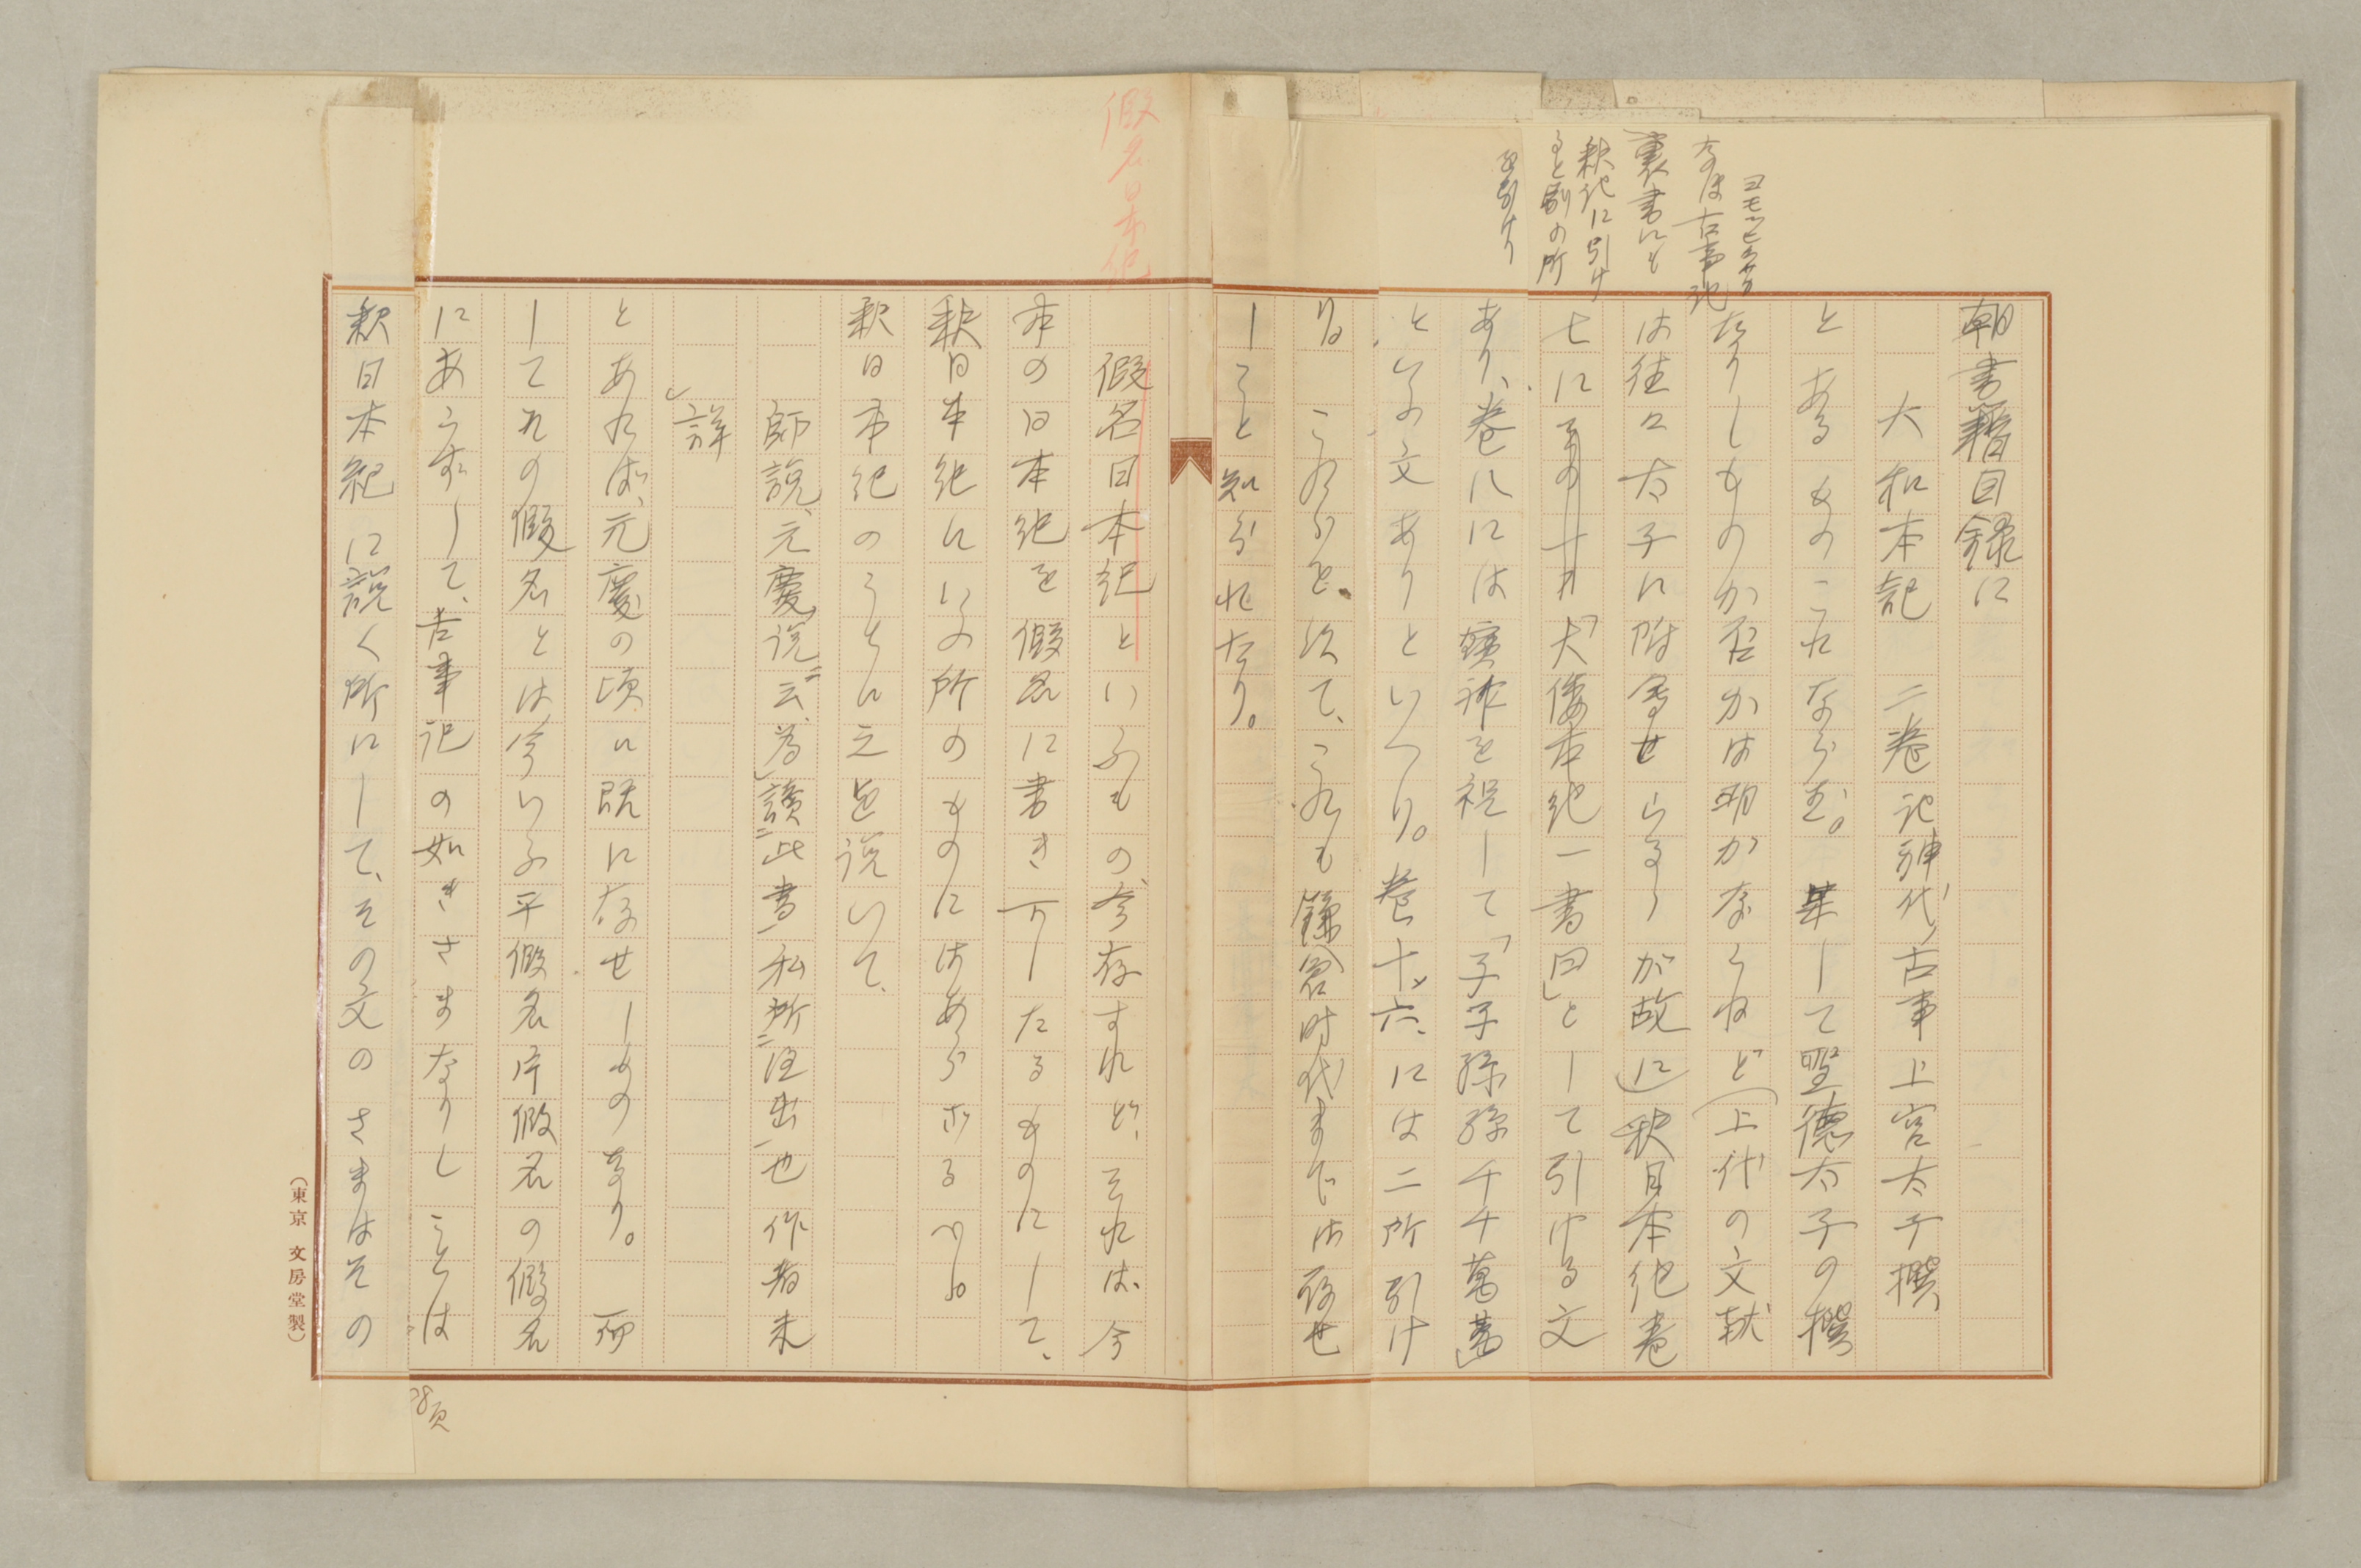 朝書籍目録に
大和本記　二巻 記神代古事 上宮太子撰
とあるものこれならむ。果して聖徳太子の撰
なりしものか否かは明かならねど(上代の文献
は往々太子に附会せらるゝが故に)釈日本紀巻
七に「大倭本紀一書曰」として引ける文
あり、巻八には寶祚を祝して「子子孫孫千千萬萬」
といふ文ありといへり。巻十六、には二所引け
り。これらを以て、これも鎌倉時代までは存せ
しこと知られたり。
ヨモツヒラサカ
なほ古事記
裏書にも
釈紀に引け
ると別の所
を引けり
假名日本紀
假名日本紀といふもの、今存すれど、それは、今
本の日本紀を假名に書き下したるものにして、
釈日本紀にいふ所のものにはあらざるべし。
釈日本紀のうちに之を説いて、
師説、元慶説云、為讀此書私所注出也作者未
詳
とあれば、元慶の頃に既に存せしものなり。而
してその假名とは今いふ平假名片假名の假名
にあらずして、古事記の如きさまなりしことは
釈日本紀に説く所にして、その文のさまはその
8頁
(東京 文房堂製)